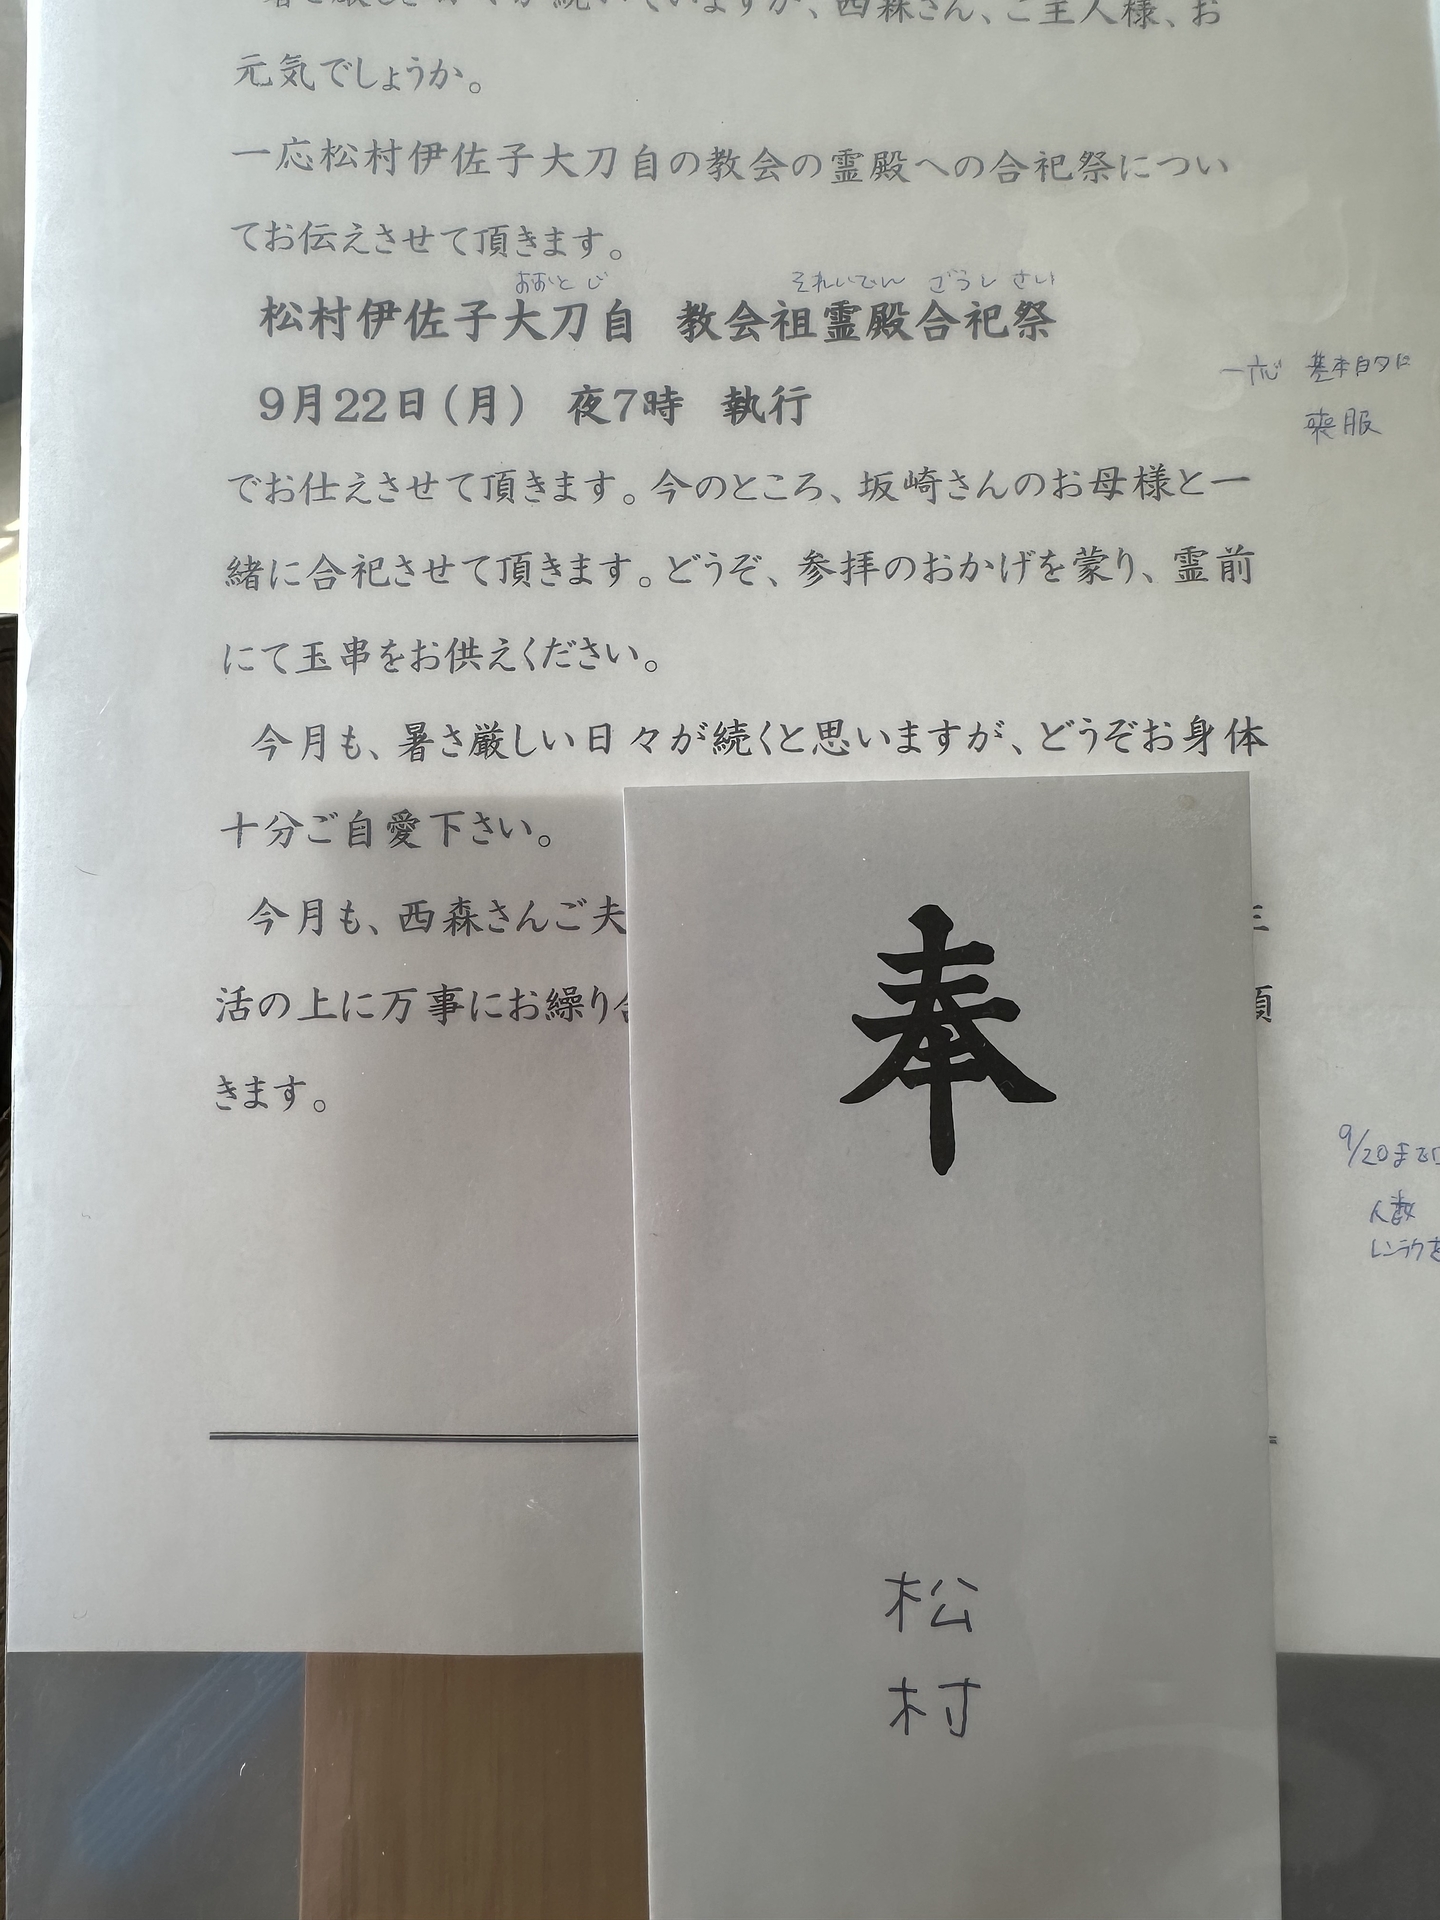 暑さ厳しき日々が続いていますが、西森さん、ご主人様、お
元気でしょうか。
一応松村伊佐子大刀自の教会の霊殿への合祀祭につい
てお伝えさせて頂きます。
おおとじ それいでん ごうし さい
松村伊佐子大刀自 教会祖霊殿合祀祭
一応 基本自タに
喪服
9月22日(月) 夜7時 執行
でお仕えさせて頂きます。今のところ、坂崎さんのお母様と一
緒に合祀させて頂きます。どうぞ、参拝のおかげを蒙り、霊前
にて玉串をお供えください。
今月も、暑さ厳しい日々が続くと思いますが、どうぞお身体
十分ご自愛下さい。
今月も、西森さんご夫
活の上に万事にお繰り
きます。
9/20までに
人数
レンラクを
奉
松
村